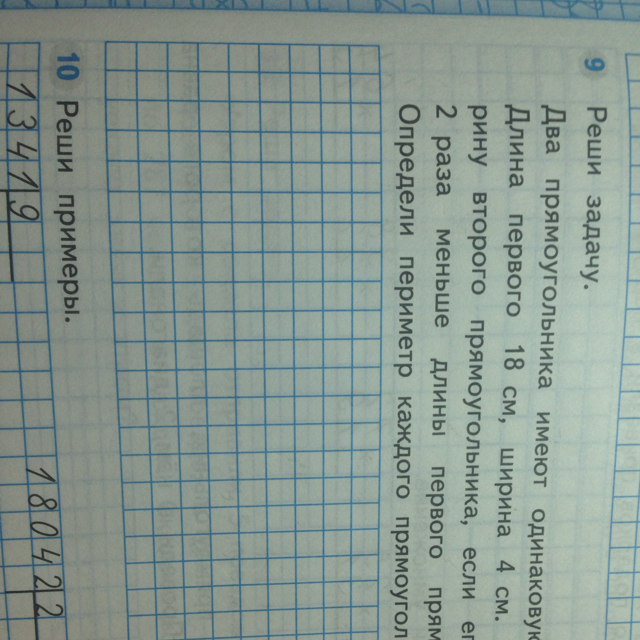 9 Реши задачу.
Два прямоугольника имеют одинаковую
Длина первого 18 см, ширина 4 см.
рину второго прямоугольника, если ег
2 раза меньше длины первого прям
Определи периметр каждого прямоугол
10 Реши примеры.
13419 18042 2